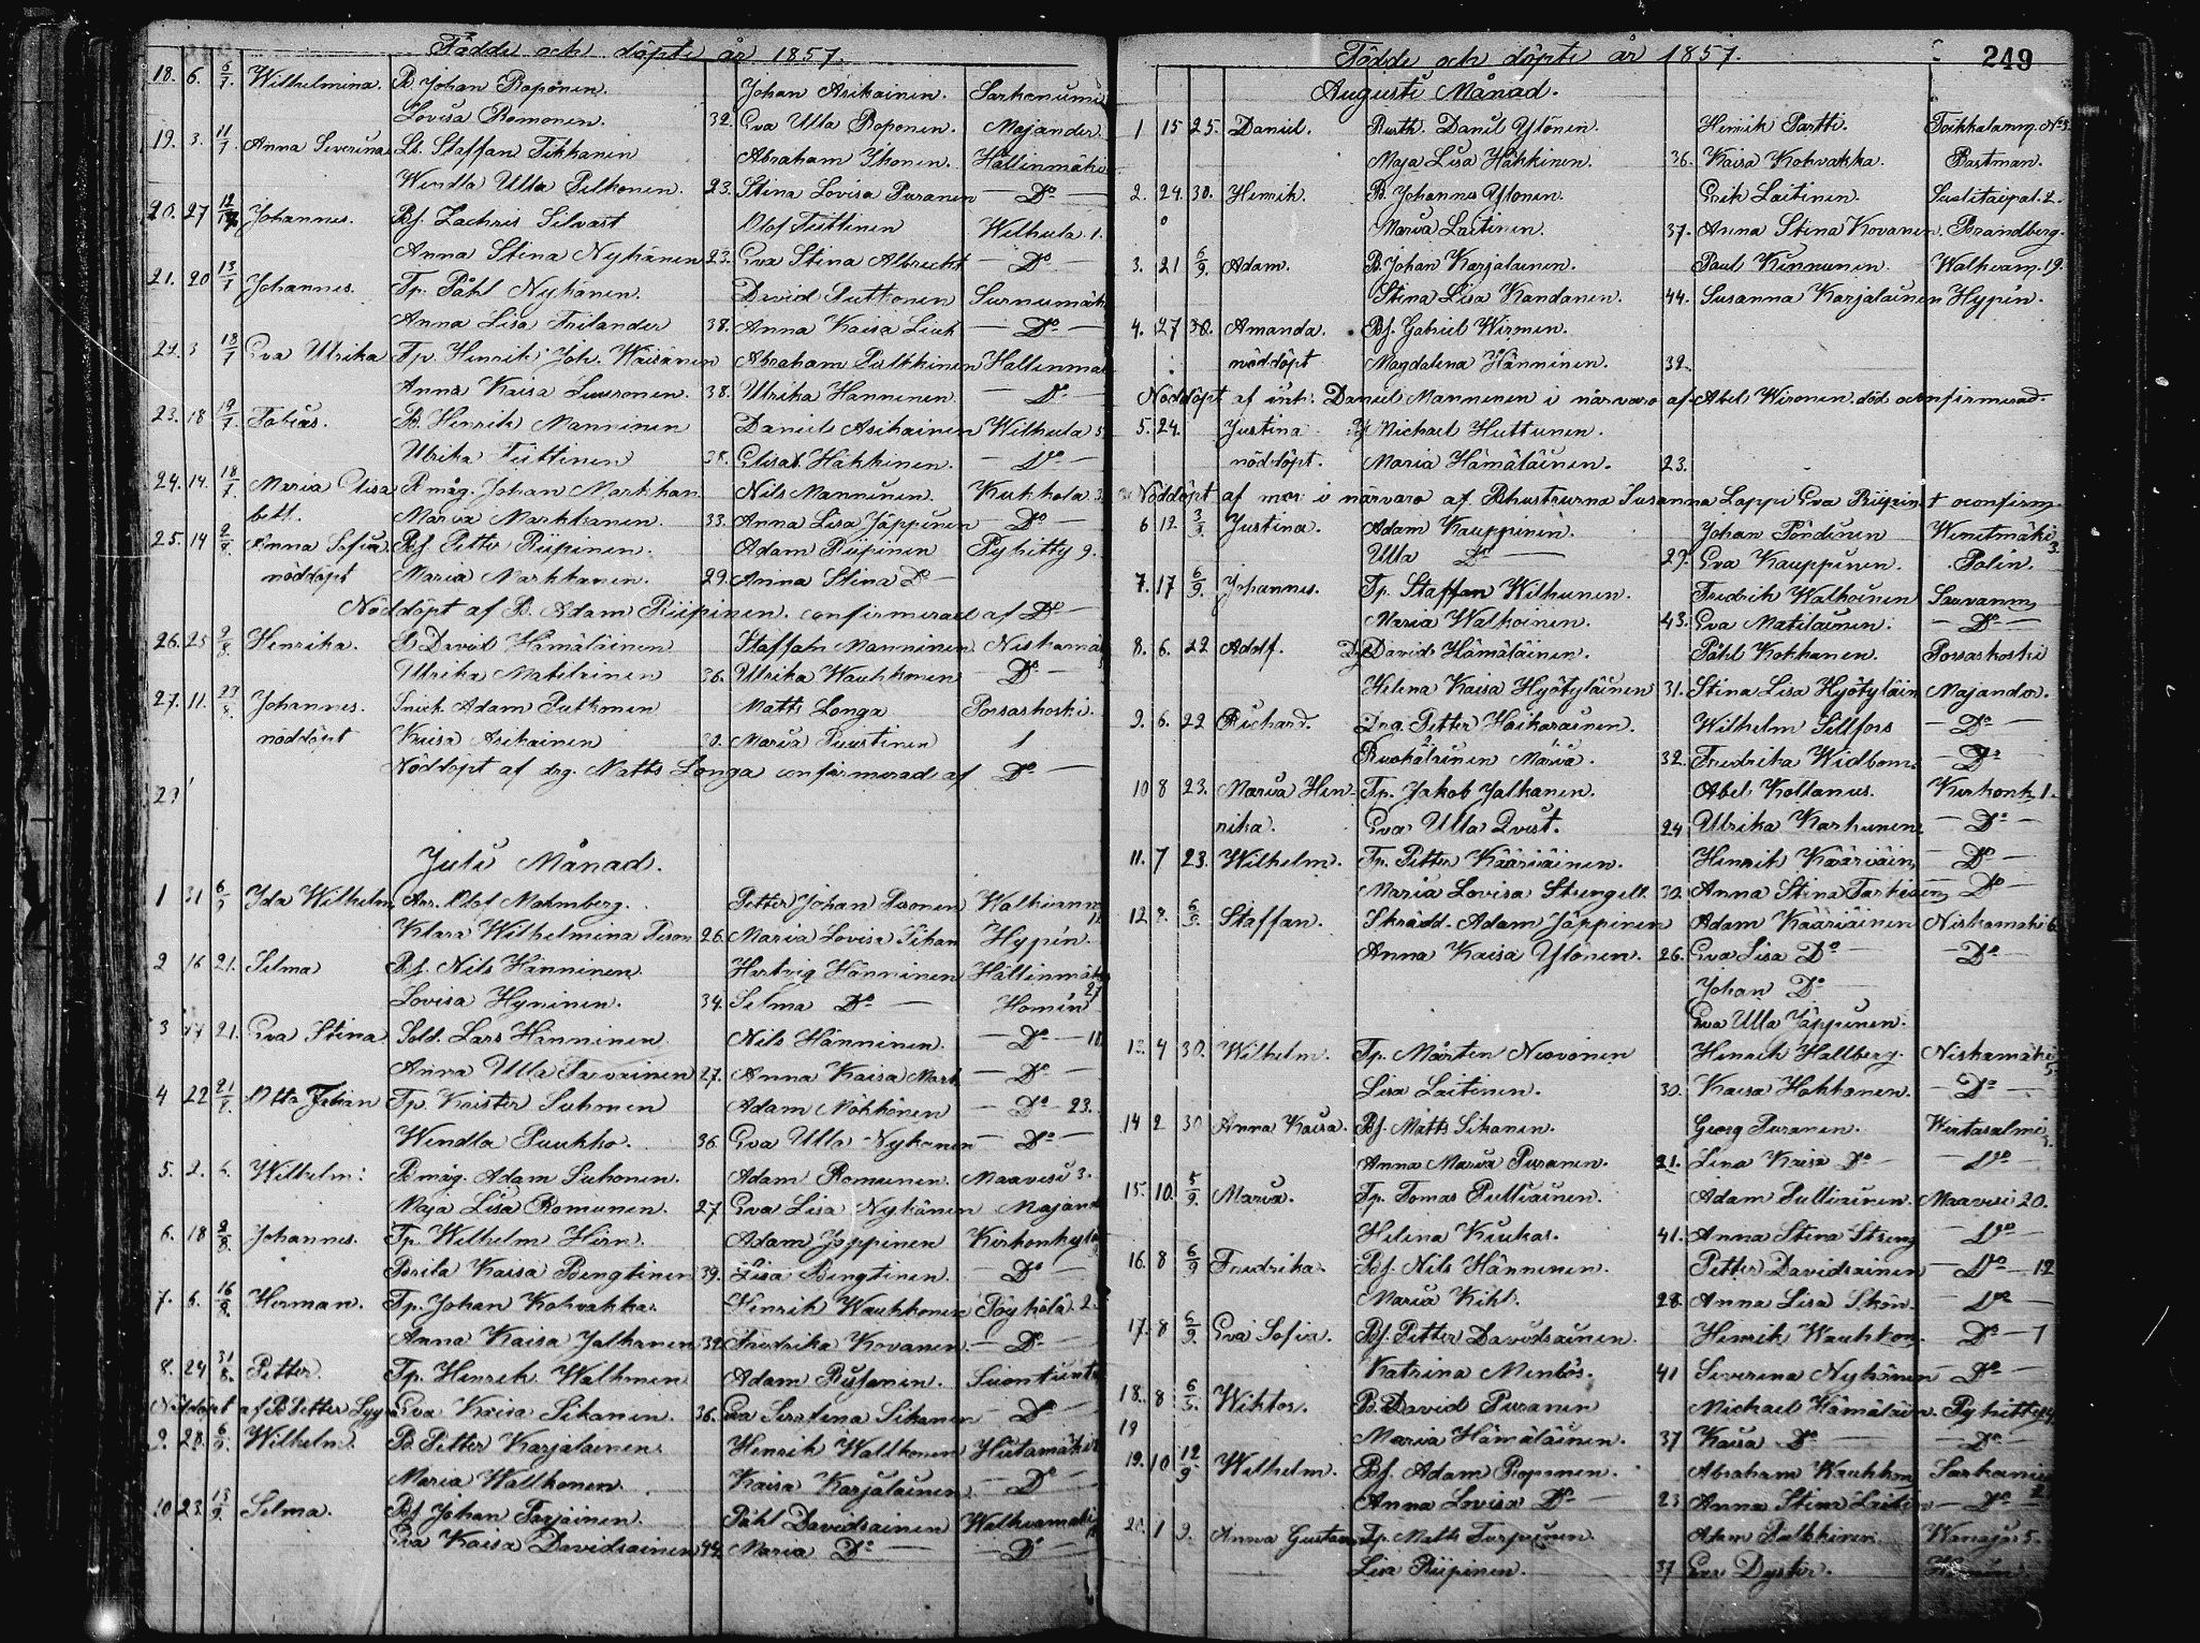 Födde och döpte år 1857.
18. 6. 6/7. Wilhelmina. B. Johan Roponen. Johan Asikainen. Sarkanumi
Lovisa Romonen. 32. Eva Ulla Roponen. Majander.
19. 3. 11/7 Anna Severina Lt. Staffan Tikkanen Abraham Ihonen. Hällinmäki
Wendla Ulla Pelkonen. 23. Stina Lovisa Puranen — Do —
20. 27 12/7 Johannes. Bf. Zachris Silvast Olof Tiittinen Wilhula 1.
Anna Stina Nykänen 23. Eva Stina Albrecht — Do —
21. 20 13/7 Johannes. Tp. Påhl Nykänen. David Putkonen Surnumäk
Anna Lisa Frilander 38. Anna Kaisa Liuk — Do —
22. 3 18/7 Eva Ulrika Tp. Henrik Joh. Wäisänen Abraham Pulkkinen Hällinmä
Anna Kaisa Suuronen. 38. Ulrika Hänninen. — Do —
23. 18 19/7. Tobias. B. Henrik Manninen Daniel Asikainen Wilhula 5
Ulrika Tiittinen 38. Elisab. Häkkinen. — Do —
24. 14. 18/7. Maria Elisa B. måg. Johan Markkan. Nils Manninen. Kukkola 3.
Maria Markkanen. 33. Anna Lisa Jäppinen — Do —
25. 14 2/8. Anna Sofia. Bf. Petter Riipinen. Adam Riipinen Pyhitty 9.
nöddöpt Maria Markkanen. 29. Anna Stina Do —
Nöddöpt af B. Adam Riipinen. confirmerad af Do —
26. 25 9/8. Henrika. B. David Hämäläinen Staffan Manninen Niskamä
Ulrika Matilainen 36. Ulrika Wauhkonen — Do —
27. 11. 23/8. Johannes. Adam Putkonen Matts Longa Porsaskoski.
nöddöpt Kaisa Asikainen 30. Maria Puustinen
Nöddöpt af drg. Matts Longa confirmerad af Do —
Juli Månad.
1 31 6/9 Ida Wilhelm Arr. Olof Malmberg. Petter Johan Pesonen Walkiamä
Klara Wilhelmina Peson 26. Maria Lovisa Tikan Hypén.
2 16 21. Selma Bf. Nils Hänninen. Hertvig Hänninen Hällinmäk
Lovisa Hyninen. 34. Selma Do — Homén 27
3 17 21. Eva Stina Sold. Lars Hänninen Nils Hänninen. — Do — 11
Anna Ulla Tarvainen 27. Anna Kaisa Mark — Do —
4 22 21/8. Otto Johan Tp. Krister Suhonen Adam Möhkönen — Do — 23.
Wendla Puukko. 36. Eva Ulla Nykänen — Do —
5. 2. 6. Wilhelm. B. måg. Adam Suhonen. Adam Romunen. Maavesi 3.
Maja Lisa Romunen. 27 Eva Lisa Nykänen Majand
6. 18 2/8. Johannes. Tp. Wilhelm Hirn. Adam Jäppinen Kirkonkylä
Brita Kaisa Bengtinen 39. Lisa Bengtinen. — Do —
7. 6. 16/8. Herman. Tp. Johan Kohvakka. Henrik Wauhkonen Pöyhölä. 2.
Anna Kaisa Jalkanen 32 Fredrika Kovanen — Do —
8. 24 31/8. Petter. Tp. Henrik Walkonen Adam Rusanen. Suontient
Nöddöpt af B. Petter Eva Kaisa Sikanen. 36. Eva Serafina Sikanen — Do —
9. 28. 6/9. Wilhelm. B. Petter Karjalainen. Henrik Walkonen Hietamäki
Maria Walkonen Kaisa Karjalainen. — Do —
10 23. 13/9. Selma. Bf. Johan Parjainen. Påhl Davidsainen Walkiamäki
Eva Kaisa Davidsainen 44. Maria Do — — Do —
249
Födde och döpte år 1857.
Augusti Månad.
1 15 25. Daniel. Rusth. Daniel Ylönen. Henrik Partti. Toikkalanm. No 3.
Maja Lisa Häkkinen. 36. Kaisa Kohvakka. Bastman.
2. 24. 30. Henrik. B. Johannes Ylönen. Erik Laitinen. Suslitaipal. 2.
Maria Laitinen. 37. Anna Stina Kovanen. Brandberg.
3. 21 6/9. Adam. B. Johan Karjalainen. Paul Kinnunen. Walkeam. 19.
Stina Lisa Kandanen. 44. Susanna Karjalainen Hypén.
4. 27 30. Amanda. Bf. Gabriel Wironen.
nöddöpt Magdalena Hänninen. 32.
Nöddöpt af inh. Daniel Manninen i närvaro af Abel Wironen död oconfirmerad.
5. 24. Justina Michael Huttunen.
nöddöpt. Maria Hämäläinen. 23.
Nöddöpt af mor i närvaro af Bhustrurna Susanna Lappi Eva Riipin † oconfirm.
6 12. Justina. Adam Kauppinen. Johan Pöndinen Wenetmäki 3.
Ulla Do — 27. Eva Kauppinen. Polin.
7. 17 6/9. Johannes. Tp. Staffan Wilhunen. Fredrik Walkoinen Sauvanm
Maria Walkoinen. 43. Eva Matilainen. — Do —
8. 6. 22 Adolf. David Hämäläinen. Påhl Kokkanen. Porsaskoski
Helena Kaisa Hyötyläinen 31. Stina Lisa Hyötyläin Majander.
9. 6. 22 Richard. Petter Haikarainen. Wilhelm Sellfors — Do —
Ruokolainen Maria. 32. Fredrika Widbom. — Do —
10 8 23. Maria Hen- Tp. Jakob Jalkanen. Abel Koltanus. Kirkonk 1.
rika. Eva Ulla Qvist. 24 Ulrika Karhunen — Do —
11. 7 23. Wilhelm. Tp. Petter Kääriäinen. Henrik Kääriäin — Do —
Maria Lovisa Strengell. 30. Anna Stina Tarkiain — Do —
12 8. 6/9. Staffan. Skrädd. Adam Jäppinen Adam Kääriäinen Niskamäki 6
Anna Kaisa Ylönen. 26. Eva Lisa Do — — Do —
Johan Do —
Eva Ulla Jäppinen.
13. 4 30. Wilhelm. Tp. Mårten Neovonen Henrik Hallberg. Niskamäki 5.
Lisa Laitinen. 30. Kaisa Hokkanen. — Do —
14 2 30 Anna Kaisa. Bf. Matts Sikanen. Georg Puranen. Wirtasalmi
Anna Maria Puranen. 21. Lena Kaisa Do — — Do —
15. 10. 5/9. Maria. Tp. Tomas Pulliainen. Adam Pulliainen. Maavesi 20.
Helena Kiukas. 41. Anna Stina Streng — Do —
16. 8 6/9 Fredrika. Bf. Nils Hänninen. Petter Davidsainen — Do — 12
Maria Kihl. 28. Anna Lisa Skön. — Do —
17. 8 6/9. Eva Sofia. Bf. Petter Davidsainen. Henrik Wauhkon. Do — 7
Katrina Menlös. 41 Severina Nykänen — Do —
18. 8 Wiktor. B. David Puranen Michael Hämäläin. Pyhitty
19 Maria Hämäläinen. 37 Kaisa Do — — Do —
19. 10 12/9. Wilhelm. Bf. Adam Roponen. Abraham Wauhkon Sarkanie
Anna Lovisa Do — 23 Anna Stina Laitin — Do —
20. 1 9. Anna Gustava Tp. Matts Tarpunen. Adam Pulkkinen. Wanaja 5.
Lisa Riipinen. 37 Eva Dyster.